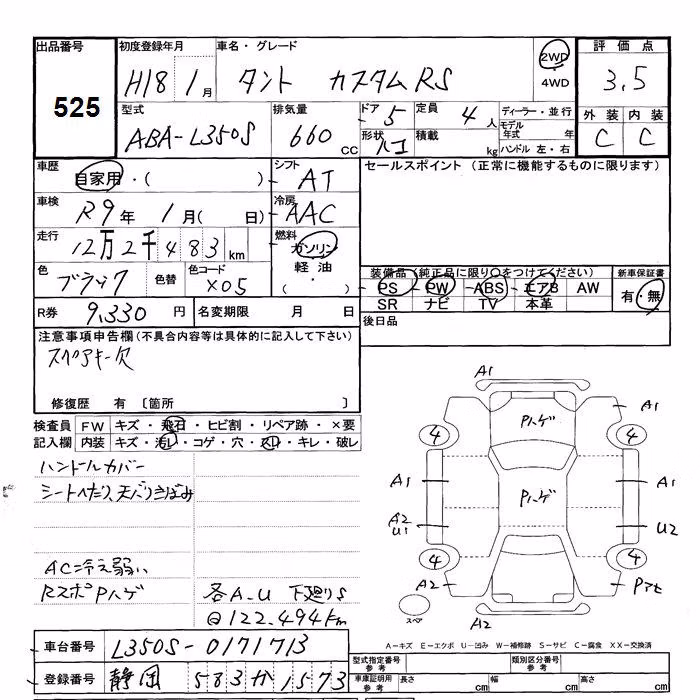 出品番号
525
初度登録年月
H18 1月
車名・グレード
タント カスタムRS
2WD
4WD
評価点
3.5
外装 内装
C C
型式
ABA-L350S
排気量
660 cc
ドア 5
形状 ハコ
定員 4 人
積載 kg
ディーラー・並行
モデル年式 年
ハンドル 左・右
車歴
自家用・( )
シフト
AT
車検
R9年 1月( 日)
冷房
AAC
走行
12万2千483km
燃料
ガソリン
軽油
( ・ )
色
ブラック
色替
色コード
X05
R券 9,330 円
名変期限 月 日
セールスポイント (正常に機能するものに限ります)
装備品 (純正品に限り○をつけてください)
PS PW ABS エアB AW
SR ナビ TV 本革
新車保証書
有・無
後日品
注意事項申告欄 (不具合内容等は具体的に記入して下さい)
スペアキー欠
修復歴 有 〔箇所 〕
検査員 FW キズ・飛石・ヒビ割・リペア跡・×要
記入欄 内装 キズ・汚レ・コゲ・穴・スレ・キレ・破レ
ハンドルカバー
シートへたり、天バリきばみ
AC=冷え弱い
RスポPハゲ
各A-U 下廻りS
@122.494km
車台番号 L350S-0171713
登録番号 静岡 583 か 1573
A1
A1
Pハゲ
4
4
A1
A1
Pハゲ
A2
U1
U2
4
4
A2
Pアセ
スペア
A2
A-キズ E-エクボ U-凹み W-補修跡 S-サビ C-腐食 XX-交換済
型式指定番号 参考
類別区分番号 参考
車庫証明用 参考
長さ cm
幅 cm
高さ cm